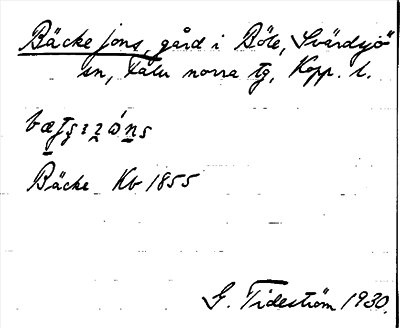 Bäcke jons, gård i Böle, Svärdsjö
sn, Falu norra tg, Kopp. l.
Bäcke Kb 1855
G. Tideström 1930.